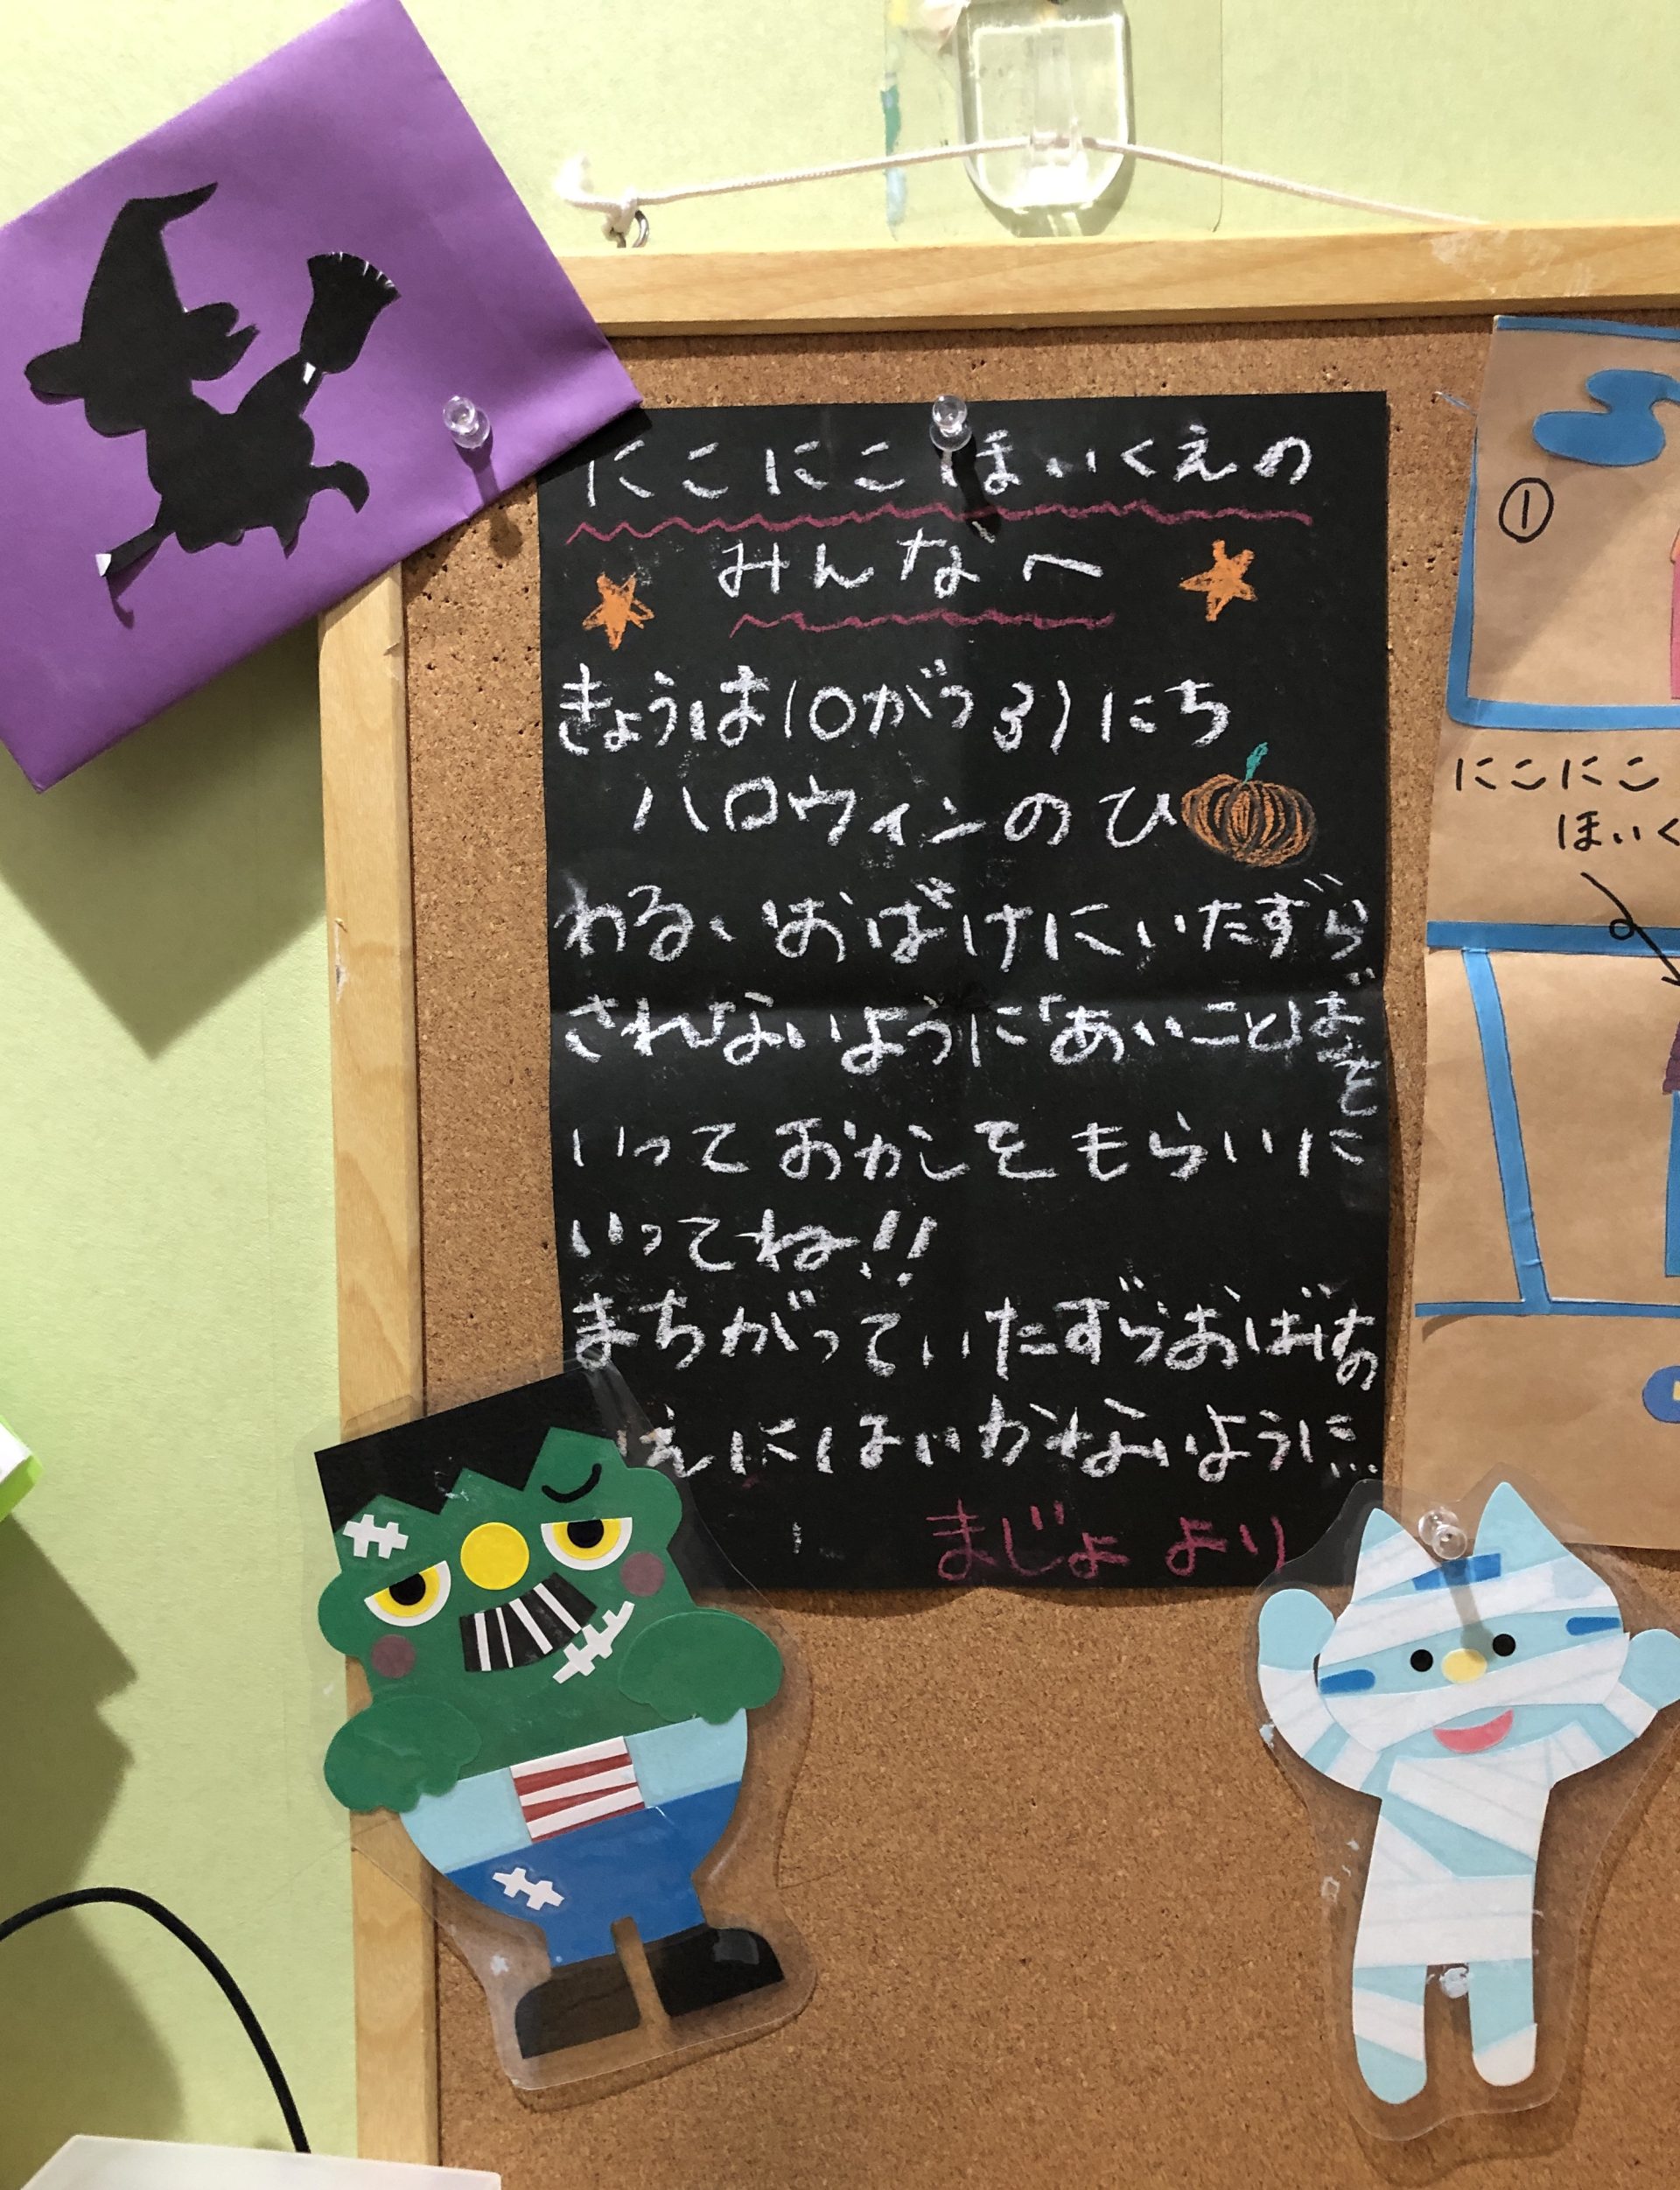 にこにこほいくえの
みんなへ
きょうは10がつ31にち
ハロウィンのひ
わるいおばけにいたずら
されないように「あいことば」を
いっておかしをもらいに
いってね!!
まちがっていたずらおばけの
いえにはいかないように...
まじょより
①
にこにこ
ほいく